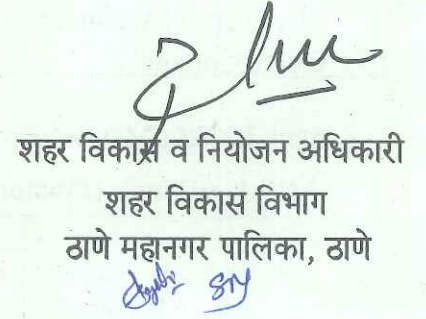 शहर विकास व नियोजन अधिकारी
शहर विकास विभाग
ठाणे महानगर पालिका, ठाणे